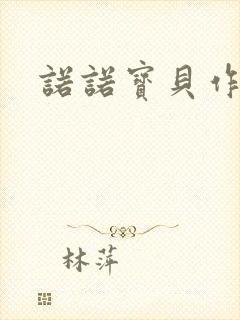 諾諾寶貝作
林萍